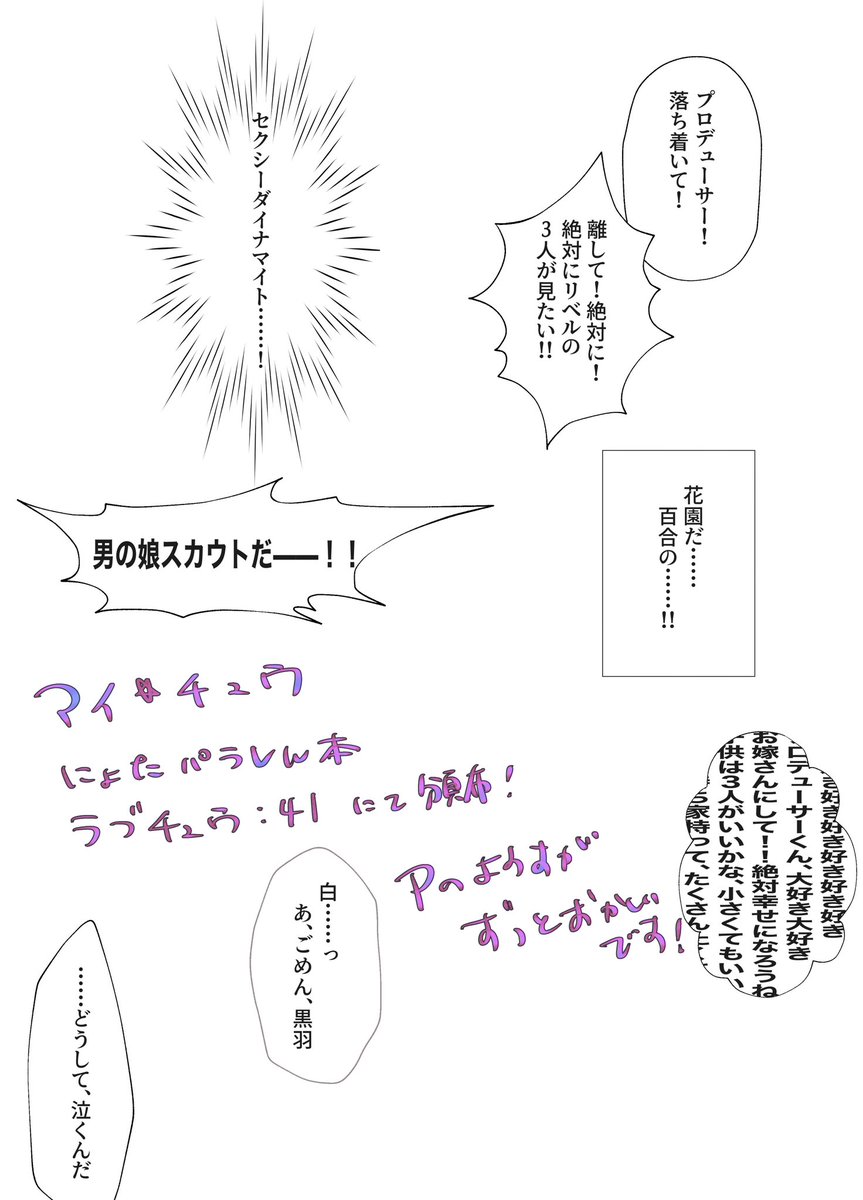 プロデューサー！
落ち着いて！
離して！絶対に！
絶対にリベルの
３人が見たい!!
セクシーダイナマイト……！
花園だ……
百合の……!!
男の娘スカウトだ――！！
マイ★チュウ
にょたパラレル本
ラブチュウ：41 にて頒布！
Pのようすが
ずっとおかしい
です！
好き好き好き好き好き
ロデューサーくん、大好き大好き
お嫁さんにして！！絶対幸せになろうね
供は３人がいいかな、小さくてもいい、
家持って、たくさん
白……っ
あ、ごめん、黒羽
……どうして、泣くんだ